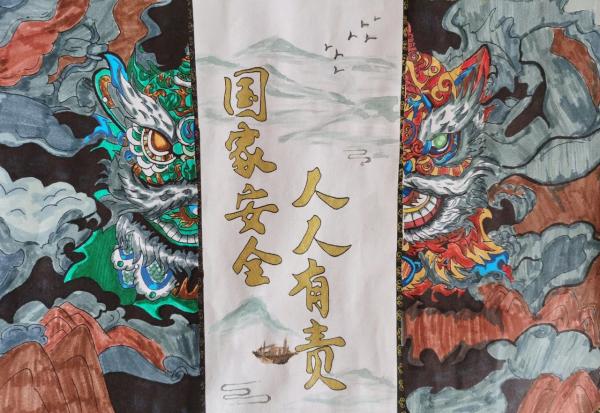 国家安全
人人有责